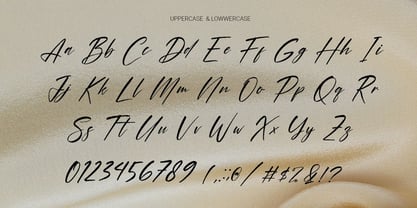 UPPERCASE & LOWWERCASE
Aa Bb Cc Dd Ee Ff Gg Hh Ii
Jj Kk Ll Mm Nn Oo Pp Qq Rr
Ss Tt Uu Vv Ww Xx Yy Zz
0123456789 (,:;@/ #$2&!?